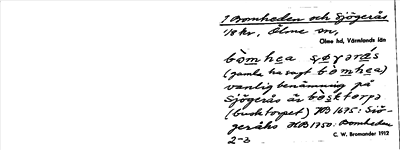 1 Bomheden och Sjögerås
1/8 kr, Ölme sn,
Ölme hd, Värmlands län
bòmhea sǥøyərás
(gamla ha sagt bòmhea)
vanlig benämning på
Sjögerås är bòsktorpə
(busktorpet) HB 1695: Siö-
geråhs HB 1750: Bomheden
2-3
C. W. Bromander 1912